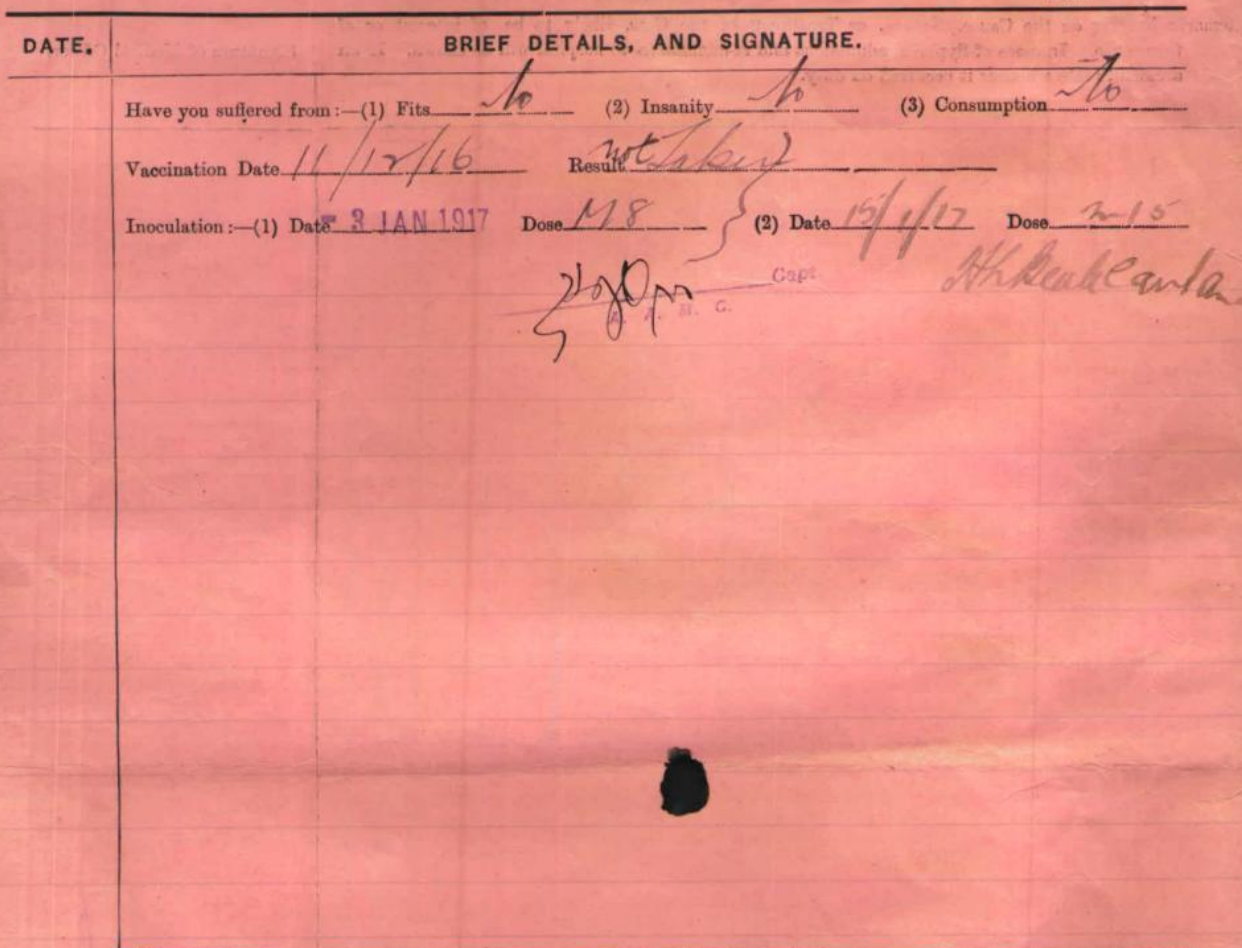 DATE. BRIEF DETAILS, AND SIGNATURE.
Have you suffered from:—(1) Fits No (2) Insanity No (3) Consumption No
Vaccination Date 11/12/16 Result not Taken
Inoculation:—(1) Date 3 JAN 1917 Dose M8 (2) Date 15/1/17 Dose m15
Capt
A. A. M. C.